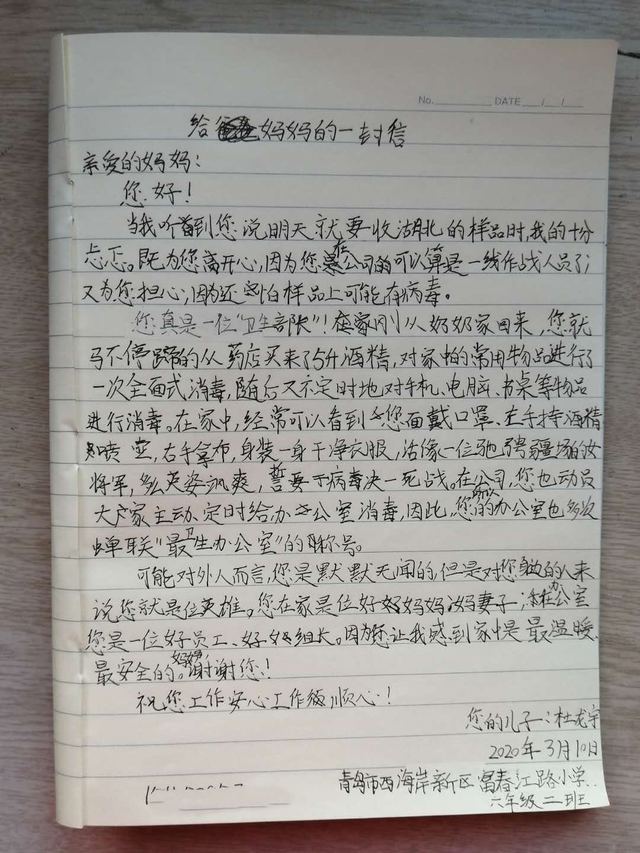 No. DATE / /
给妈妈的一封信
亲爱的妈妈：
您好！
当我听到您说明天就要收湖北的样品时，我的十分
忐忑。既为您高开心，因为您在公司的可以算是一线作战人员了；
又为您担心，因为还怕样品上可能有病毒。
您真是一位“卫生部长”！在家刚从奶奶家回来，您就
马不停蹄的从药店买来了5升酒精，对家中的常用物品进行了
一次全面式消毒，随后又不定时地对手机、电脑、书桌等物品
进行消毒。在家中，经常可以看到您面戴口罩、左手持酒精
喷壶，右手拿布，身装一身干净衣服，活像一位驰骋疆场的女
将军，多么英姿飒爽，誓要于病毒决一死战。在公司，您也动员
大家主动、定时给办公室消毒，因此，您的办公室也多次
蝉联“最卫生办公室”的称号。
可能对外人而言，您是默默无闻的，但是对您身边的人来
说您就是位英雄。您在家是位好妈妈好妻子；在办公室
您是一位好员工、好组长。因为您让我感到家中是最温暖、
最安全的。妈妈，谢谢您！
祝您工作安心工作顺心！
您的儿子：杜龙宇
2020年3月10日
青岛市西海岸新区富春江路小学
六年级二班